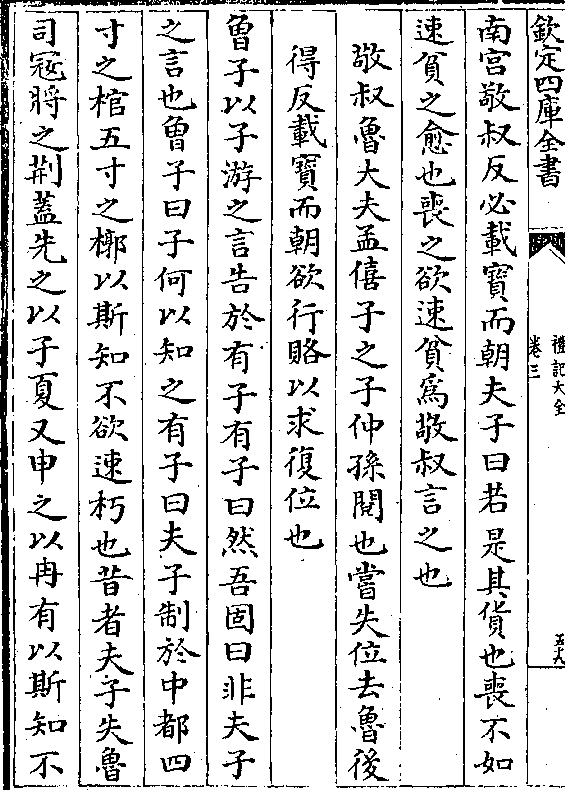 欽定四庫全書
禮記大全
卷三
五十八
南宮敬叔反必載寶而朝夫子曰若是其貨也喪不如
速貧之愈也喪之欲速貧為敬叔言之也
敬叔魯大夫孟僖子之子仲孫閱也嘗失位去魯後
得反載寶而朝欲行賂以求復位也
曾子以子游之言告於有子有子曰然吾固曰非夫子
之言也曾子曰子何以知之有子曰夫子制於中都四
寸之棺五寸之槨以斯知不欲速朽也昔者夫子失魯
司寇將之荆蓋先之以子夏又申之以冉有以斯知不